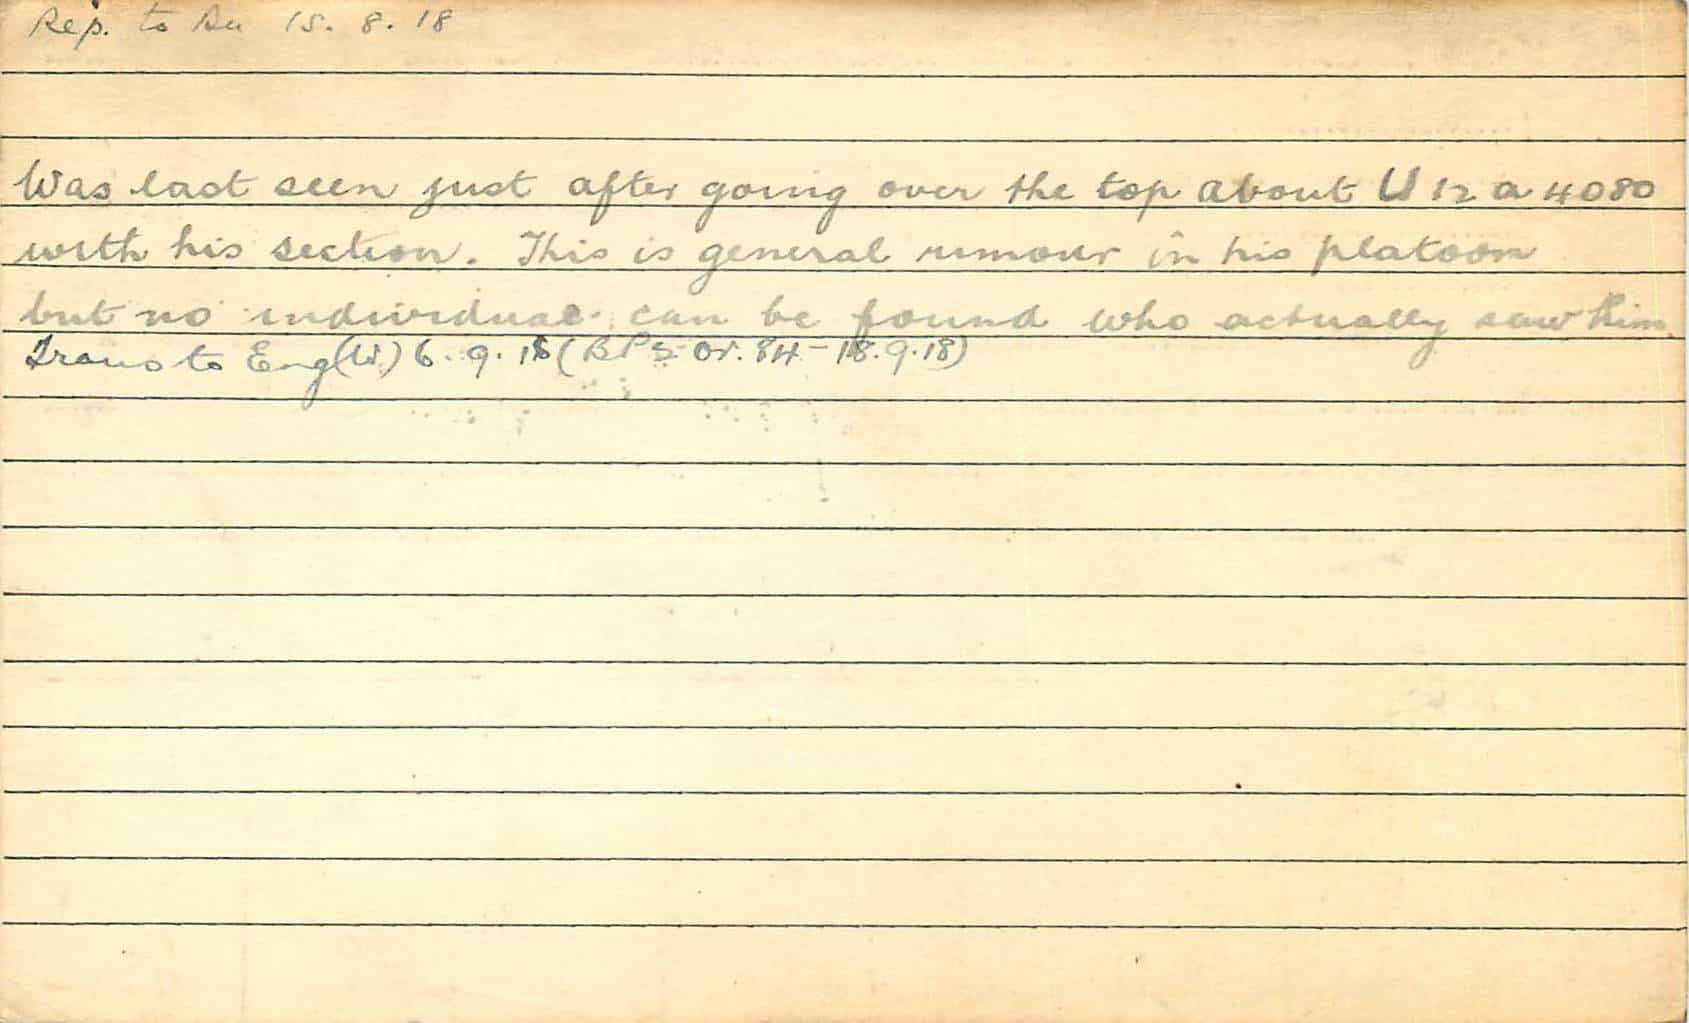 Rep. to Bu 15. 8. 18
Was last seen just after going over the top about U 12 a 4080
with his section. This is general rumour in his platoon
but no individual can be found who actually saw him
Trans to Eng (W) 6. 9. 18 (BPS Or. 84 - 18.9.18)